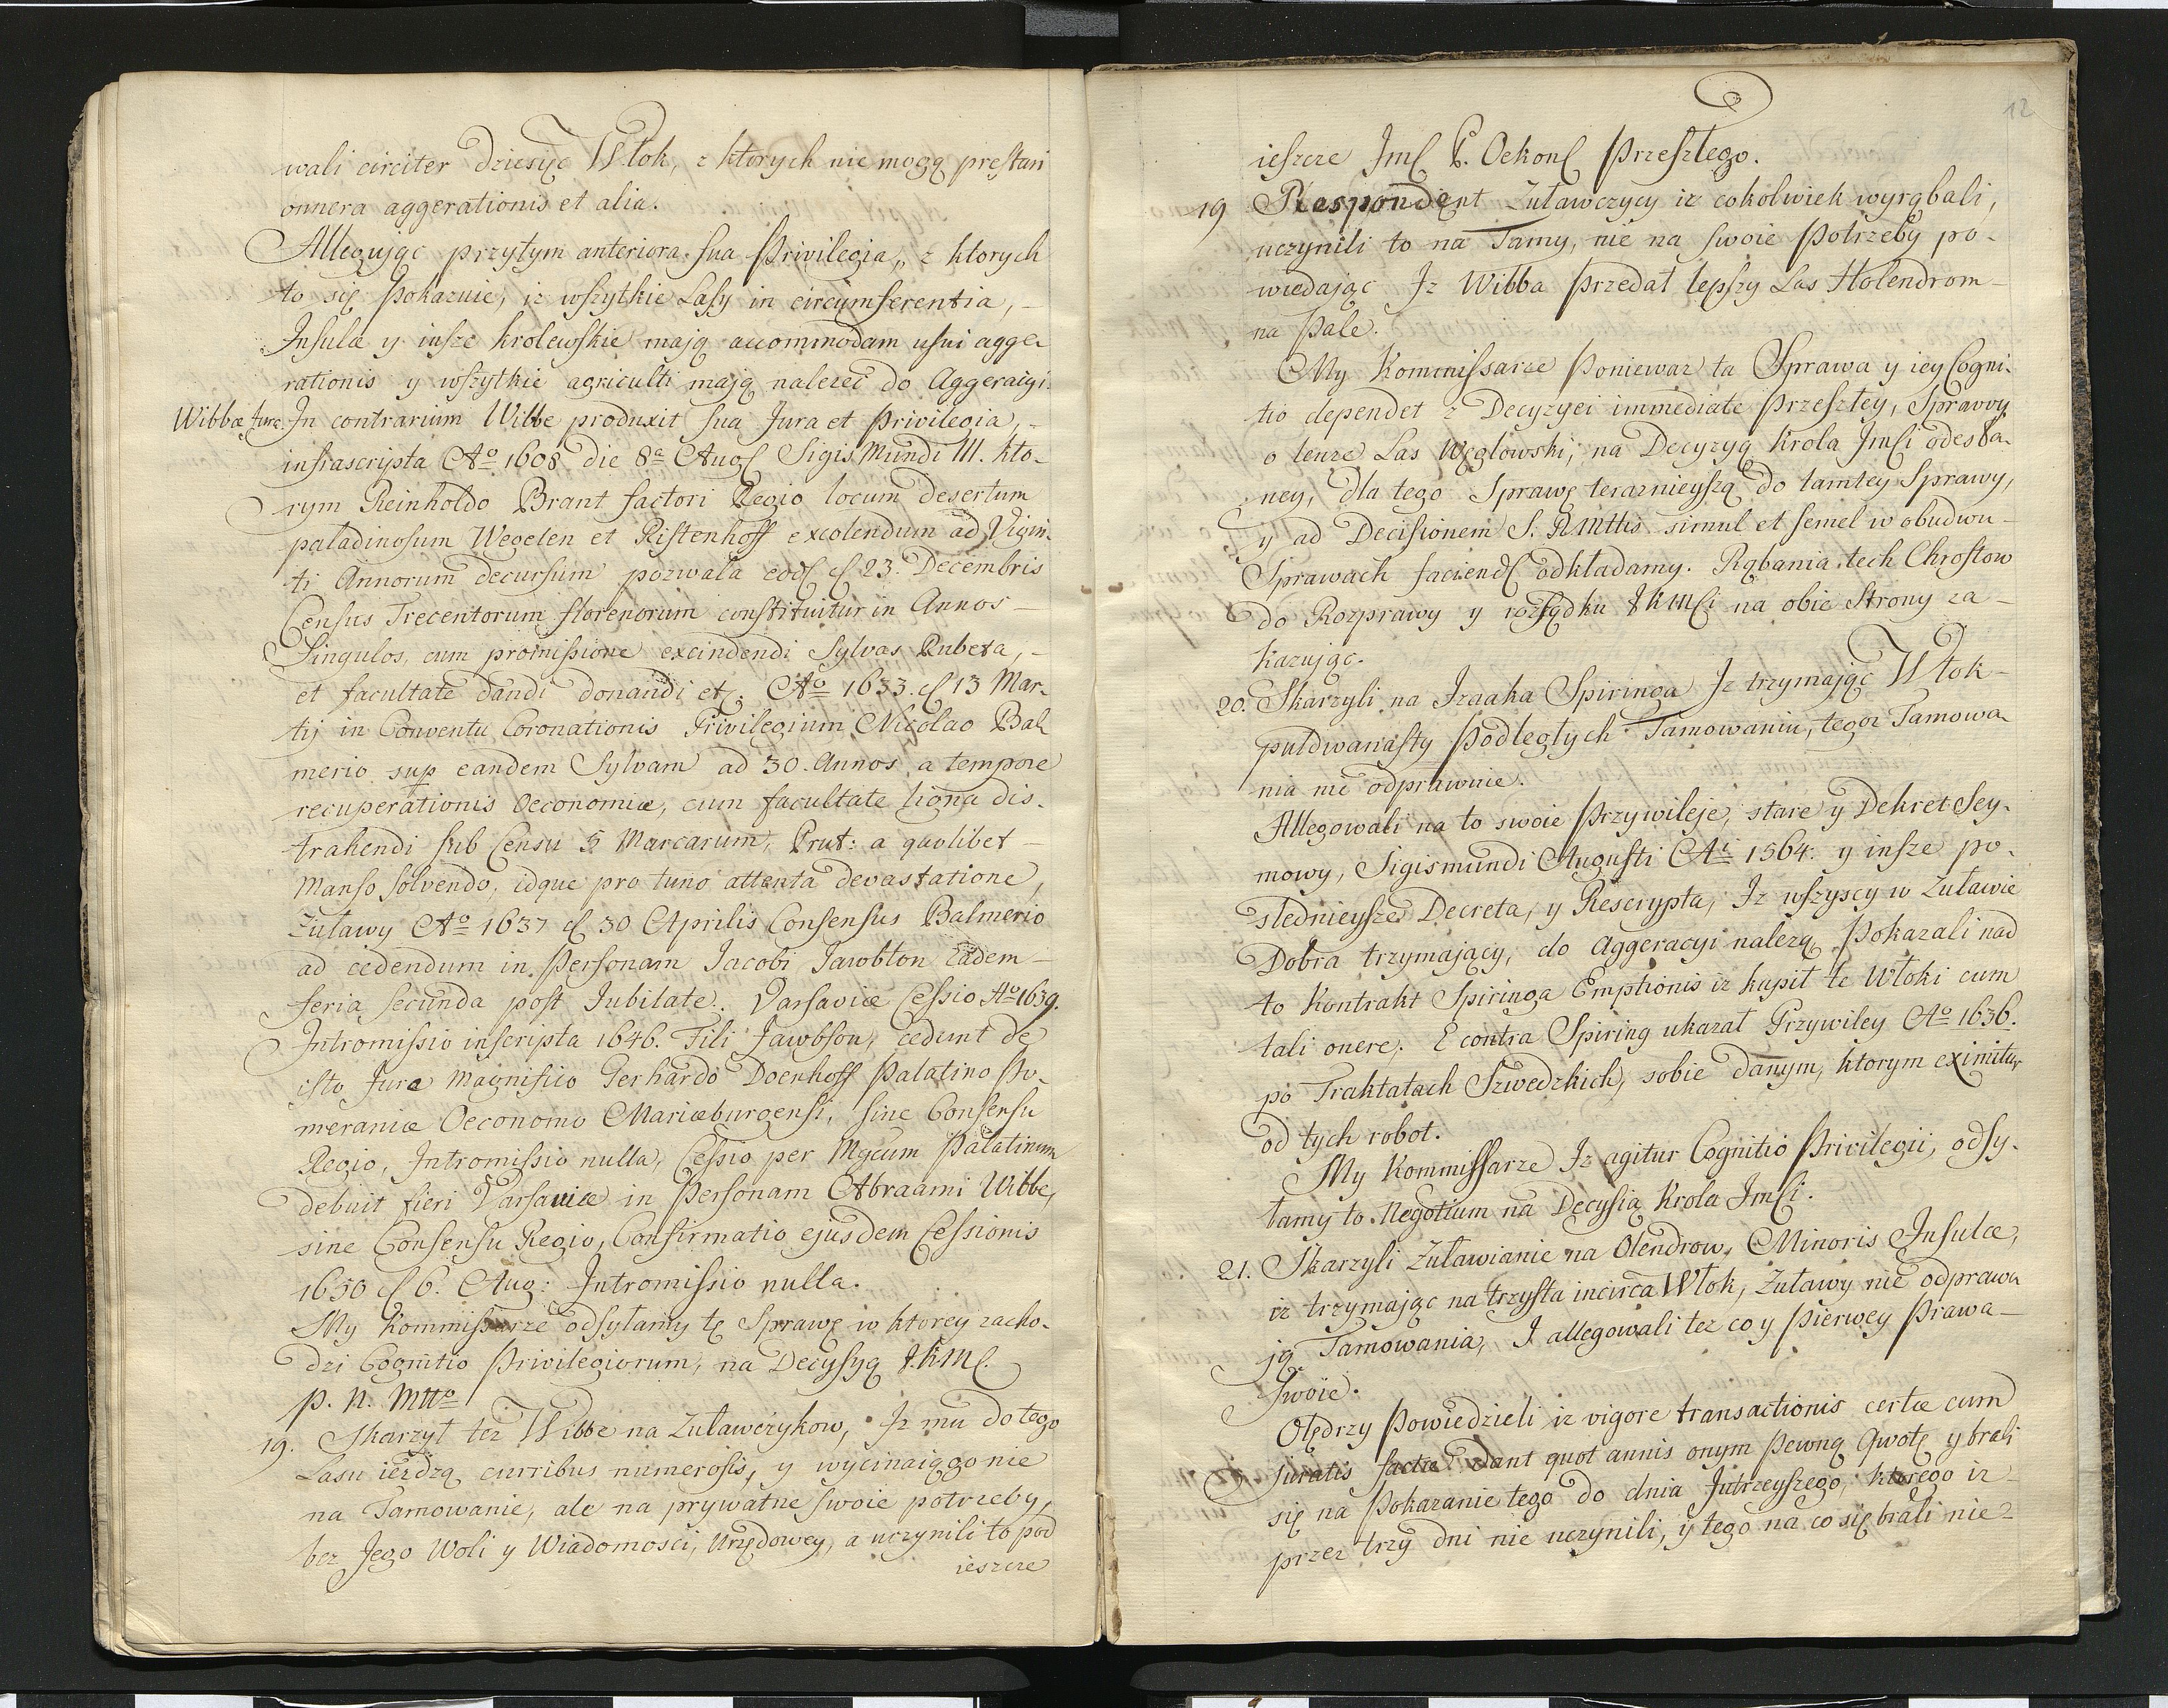 wali circiter dziesięc Włok, z ktorych nie mogą prestari
onnera aggerationis et alia.
Allegując przytym anteriora sua Privilegia, z ktorych
to się pokazuie, iz wszytkie Lasy in circumferentia, -
Insulæ y insze krolewskie mają accommodam usui agge-
rationis y wszytkie agriculti mają nalezeć do Aggeracyi.
Wibbæ Jura. In contrarium Wibbe produxit sua Jura et Privilegia, -
infrascripta Aº 1608 die 8ª Aug Sigis Mundi III. kto-
rym Reinholdo Brant factori Regio locum desertum
paladinosum Wegelen et Ristenhoff excolendum ad Vigin-
ti Annorum decursum pozwala eod d 23. Decembris
Census Trecentorum florenorum constituitur in Annos -
Singulos, cum promissione excindendi Sylvas Rubeta, -
et facultate dandi donandi etc. Aº 1633. d 13 Mar-
tij in Conventu Coronationis Privilegium Nicolao Bal-
merio sup eandem Sylvam ad 30. Annos a tempore
recuperationis Oeconomiæ, cum facultate ligna dis-
trahendi sub Censu 5 Marcarum, Prut: a quolibet -
Manso solvendo, idque pro tuno attenta devastatione,
Zuławy Aº 1637 d 30 Aprilis Consensus Balmerio
ad cedendum in Personam Jacobi Jawbton eadem -
feria secunda post Jubilate. Varsaviæ Cessio Aº 1639.
Intromissio inscripta 1646. Fili Jawbson, cedunt de
isto Jure Magnifico Gerhardo Doenhoff Palatino Po-
meraniæ Oeconomo Mariæburgensi, sine Consensu
Regio, Intromissio nulla, Cessio per Mgcum Palatinum
debuit fieri Varsaviæ in Personam Abraami Wibbe,
sine Consensu Regio, Confirmatio ejusdem Cessionis
1650 d 6. Aug: Intromissio nulla.
My Kommissarze odsyłamy tę Sprawę w ktorey zacho-
dzi Cognitio Privilegiorum, na Decysyą J.K.M.
p. n. Mttº
19. Skarzył tez Wibbe na Zuławczykow, Iz mu do tego
Lasu iezdzą curribus numerosis, y wycinaią go nie
na Tamowanie, ale na prywatne swoie potrzeby,
bez Jego Woli y Wiadomosci, Urzędowey, a uczynili to pod
ieszcze
12
ieszcze Jm P. Oekon Przeszłego.
19 Respondent Zuławczycy iz cokolwiek wyrąbali,
uczynili to na Tamy, nie na swoie Potrzeby po-
wiedając Iz Wibba Przedał lepszy Las Holendrom -
na Pale.
My Kommissarze Poniewaz ta Sprawa y iey Cogni-
tio dependet z Decyzyei immediate Przeszłey, Sprawy
o tenze Las Węglowski, na Decyzyą Krola Jmsci odesła-
ney, dla tego Sprawę terazniejszą do tamtey Sprawy,
y ad Decisionem S. R Mttis simul et semel w obudwu -
Sprawach faciend odkładamy. Rąbania tech Chrostow
do Rozprawy y rozsądku JKMsci na obie Strony za -
kazując.
20. Skarzyli na Izaaka Spiringa Iz trzymając Włok -
pułdwanasty Podległych Tamowaniu, tegoz Tamowa-
nia nie odprawuie.
Allegowali na to swoie Przywileje, stare y Dekret Sey-
mowy, Sigismundi Augusti Ai 1564. y insze po-
slednieysze Decreta, y Rescrypta, Iz wszyscy w Zuławie
Dobra trzymający, do Aggeracyi nalezą, Pokazali nad
to Kontrakt Spiringa Emptionis iz kupił te Włoki cum
tali onere. E contra Spiring ukazał Przywiley Aº 1636.
po Traktatach Szwedzkich, sobie danym, ktorym eximitur
od tych robot.
My Kommissarze Iz agitur Cognitio Privilegii, odsy-
łamy to Negotium na Decysią Krola Jmsci.
21. Skarzyli Zuławianie na Olendrow, Minoris Insulæ,
iz trzymając na trzysta incirca Włok, Zuławy nie odprawu-
ją Tamowania, I allegowali tez co y Pierwey Prawa -
swoie.
Olędrzy Powiedzieli iz vigore transactionis certæ cum
Juratis factæ dant quot annis onym Pewną Qwotę y brali
się na Pokazanie tego do dnia Jutrzeyszego, ktorego iz -
przez trzy dni nie uczynili, y tego na co się brali nie-